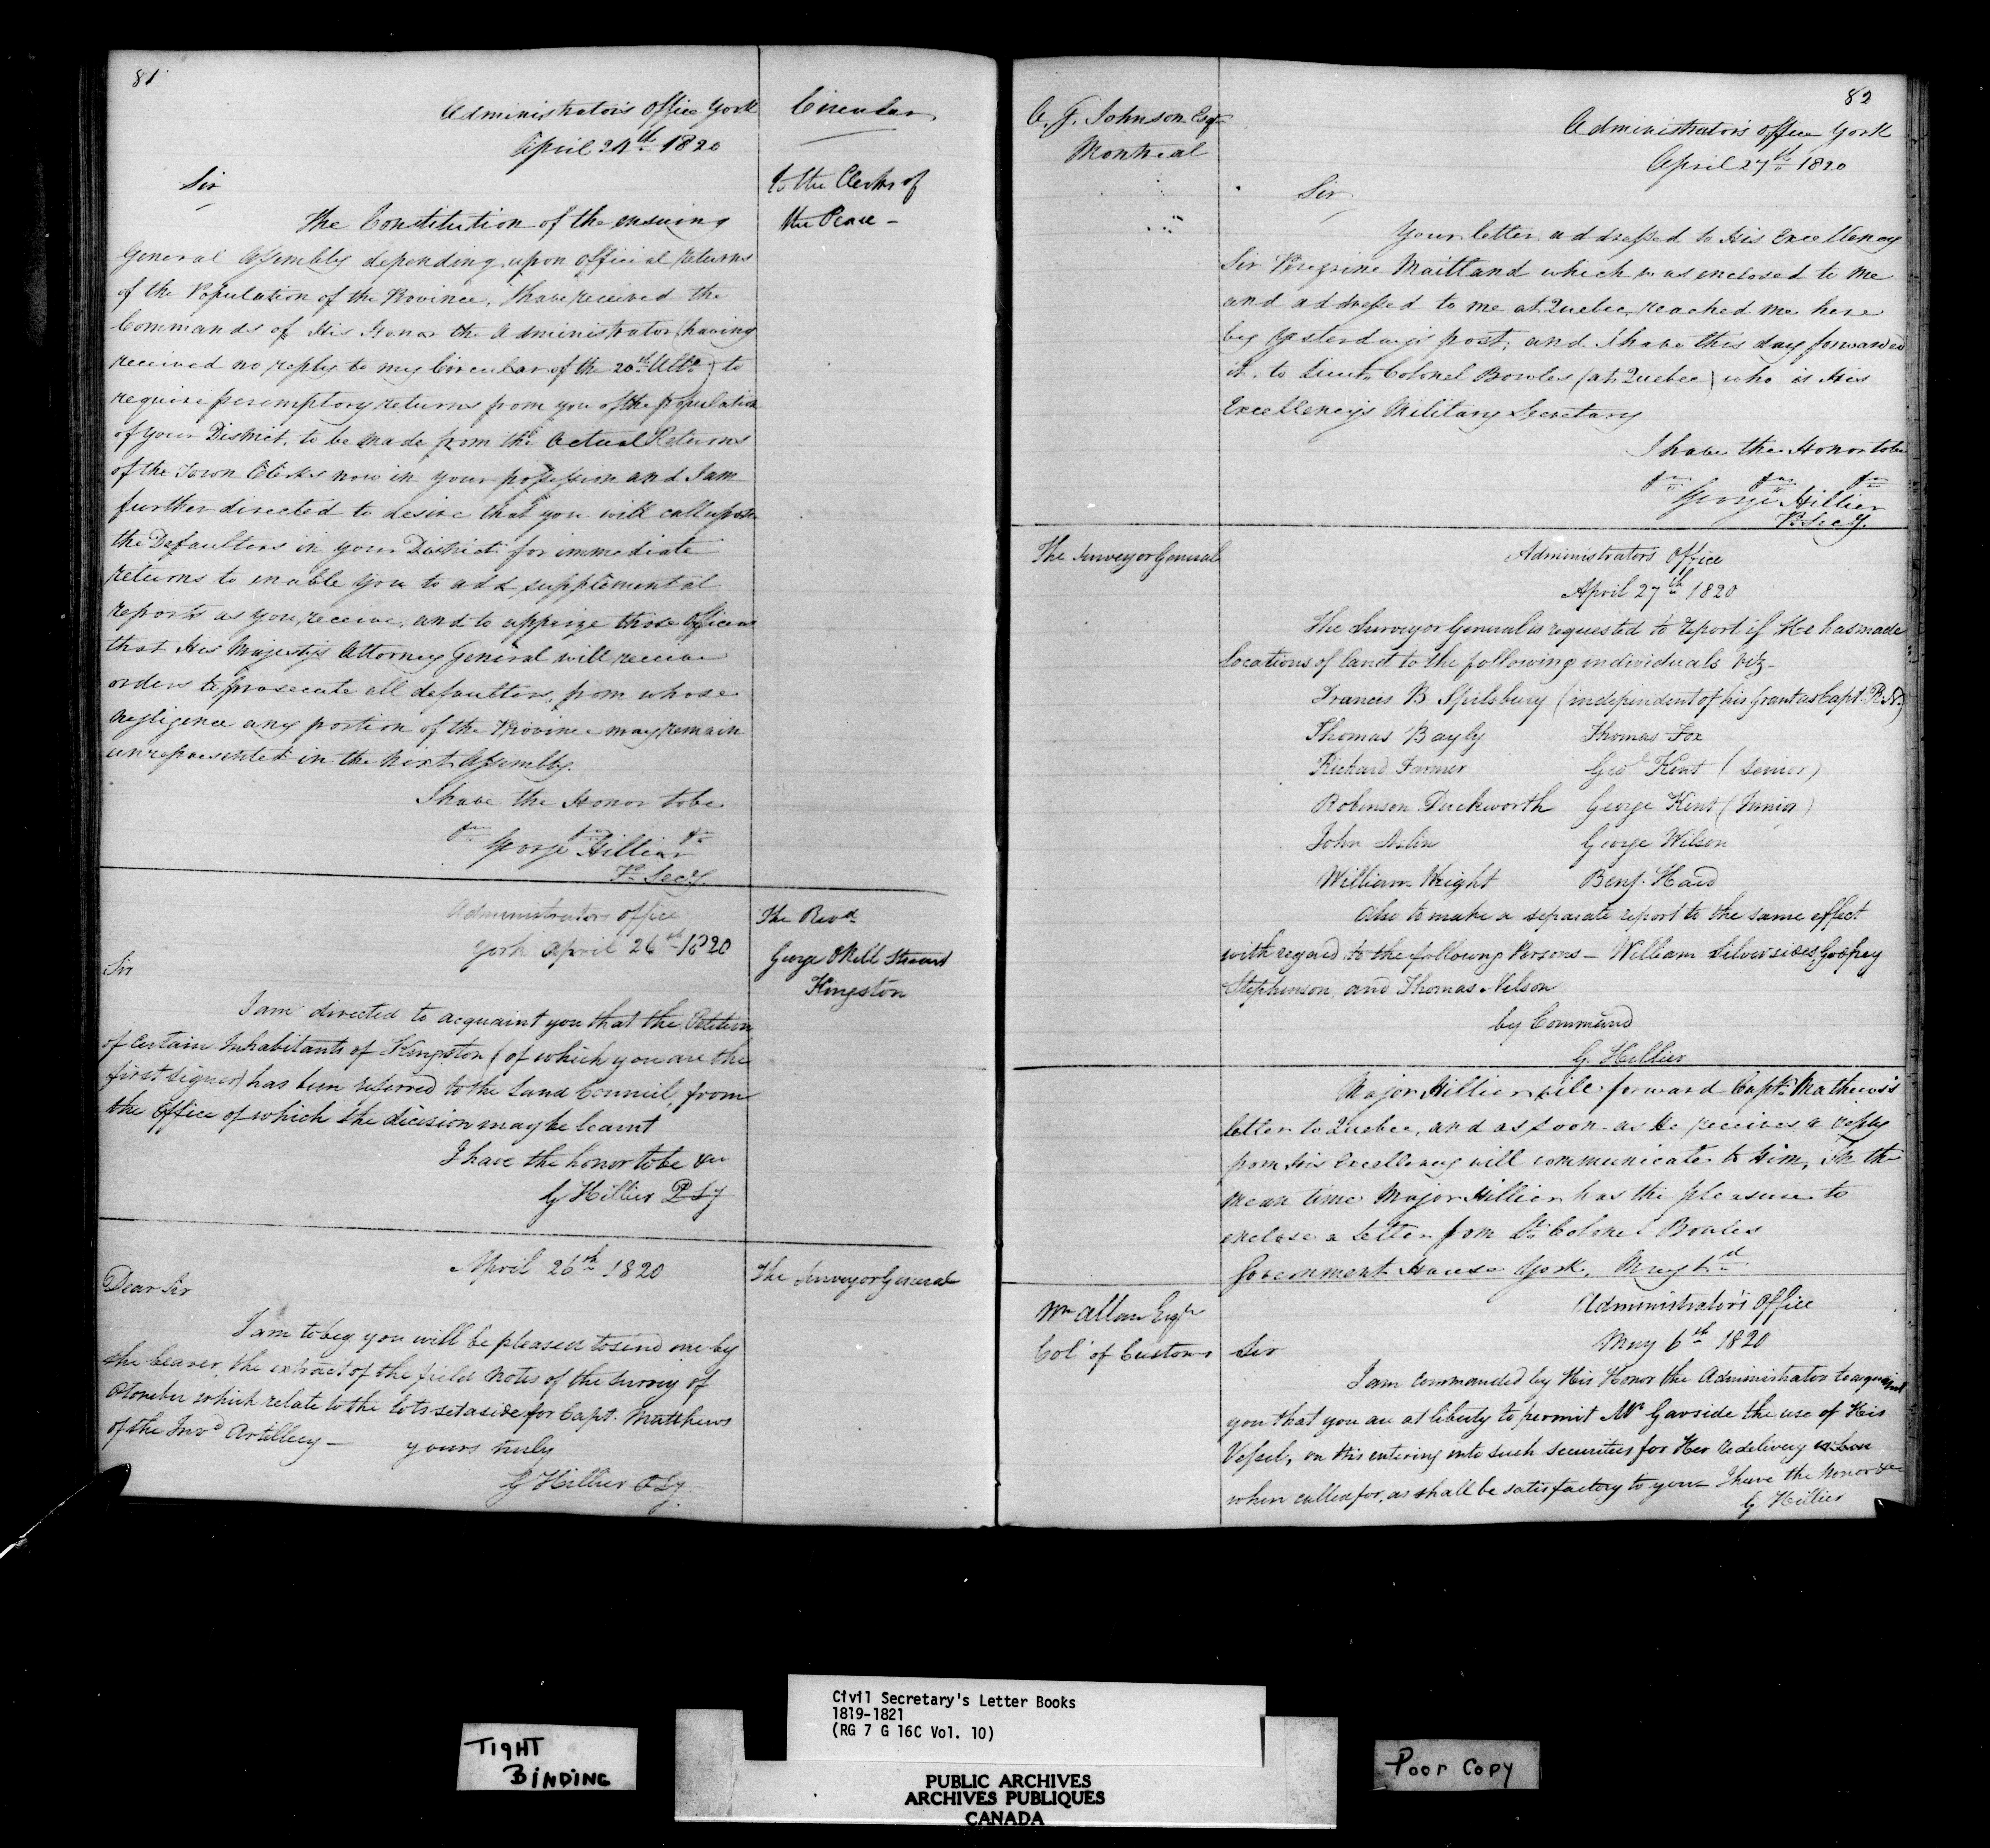 81
Administrators Office York
April 24th 1820
Circular
to the Clerks of
the Peace -
Sir
The Constitution of the ensuing
General Assembly depending upon official returns
of the Population of the Province, I have received the
Commands of His Honor the Administrator (having
received no reply to my Circular of the 20th Ulto) to
require peremptory returns from you of the population
of your District, to be made from the Actual Returns
of the Town Clerks now in your possession and I am
further directed to desire that you will call upon
the Defaulters in your District for immediate
returns to enable you to add supplemental
reports as you receive, and to apprize those Officers
that His Majesty's Attorney General will receive
orders to prosecute all defaulters, from whose
negligence any portion of the Province may remain
unrepresented in the next Assembly.
I have the Honor to be
&c &c &c
George Hillier
P. Secy.
The Revd
George Okill Stewart
Kingston
Administrators office
York April 26th 1820
Sir
I am directed to acquaint you that the Petition
of certain Inhabitants of Kingston (of which you are the
first signer) has been referred to the Land Council, from
the Office of which the dicision may be learnt
I have the honor to be &c
G Hillier P Sy
The Surveyor General
April 26th 1820
Dear Sir
I am to beg you will be pleased to send me by
the bearer, the extract of the field Notes of the Survey of
Otonabee which relate to the lots set aside for Capt. Matthews
of the Invd Artillery -
yours truly
G Hillier P Sy
82
C. G. Johnson Esqr
Montreal
Administrators office York
April 27th 1820
Sir
Your letter addressed to His Excellency
Sir Peregrine Maitland which was enclosed to me
and addressed to me at Quebec, reached me here
by yesterday's post; and I have this day forwarded
it, to Lieut. Colonel Bowles (at Quebec) who is His
Excellency's Military Secretary
I have the Honor to be
&c &c &c
George Hillier
P. Secy.
The Surveyor General
Administrators Office
April 27th 1820
The Surveyor General is requested to report if He has made
locations of land to the following individuals viz-
Francis B. Spilsbury (independent of his grant as Capt. R.N.)
Thomas Bayly Thomas Fox
Richard Farmer Geo Kent (Senior)
Robinson Duckworth George Kent (Junior)
John Aslin George Wilson
William Wright Benj. Hard
Also to make a separate report to the same effect
with regard to the following Persons - William Silversides, Godfrey
Stephenson, and Thomas Nelson
by Command
G. Hillier
Major Hillier will forward Captn. Mathews's
letter to Quebec, and as soon as He receives a reply
from His Excellency will communicate to Him, In the
mean time Major Hillier has the pleasure to
enclose a Letter from Lt. Colonel Bowles
Government House York, May 1st
Wm Allan Esqr
Col of Customs
Administrator's Office
May 6th 1820
Sir
I am commanded by His Honor the Administrator to acquaint
you that you are at liberty to permit Mr Garside the use of His
Vessel, on this entering into such securities for Her redelivery
when called for, as shall be satisfactory to you - I have the Honor &c
G Hillier
Civil Secretary's Letter Books
1819-1821
(RG 7 G 16C Vol. 10)
TIGHT
BINDING
PUBLIC ARCHIVES
ARCHIVES PUBLIQUES
CANADA
Poor Copy